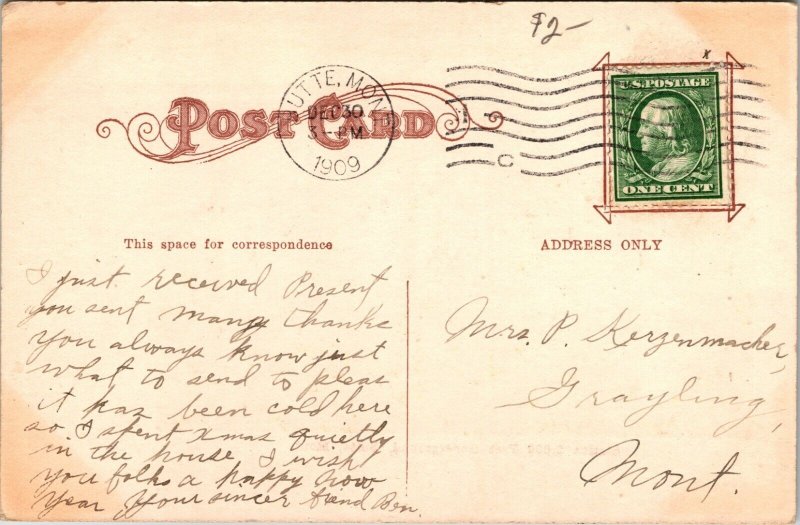 $2-
x
POST CARD
BUTTE, MONT.
DEC 30
3-PM
1909
U.S. POSTAGE
ONE CENT
This space for correspondence
ADDRESS ONLY
I just received Present
you sent many thanks
you always know just
what to send to pleas
it has been cold here
so I spent Xmas quietly
in the house I wish
you folks a happy now
year your sincer friend Ben.
Mrs. P. Kerzenmacher,
Grayling,
Mont.